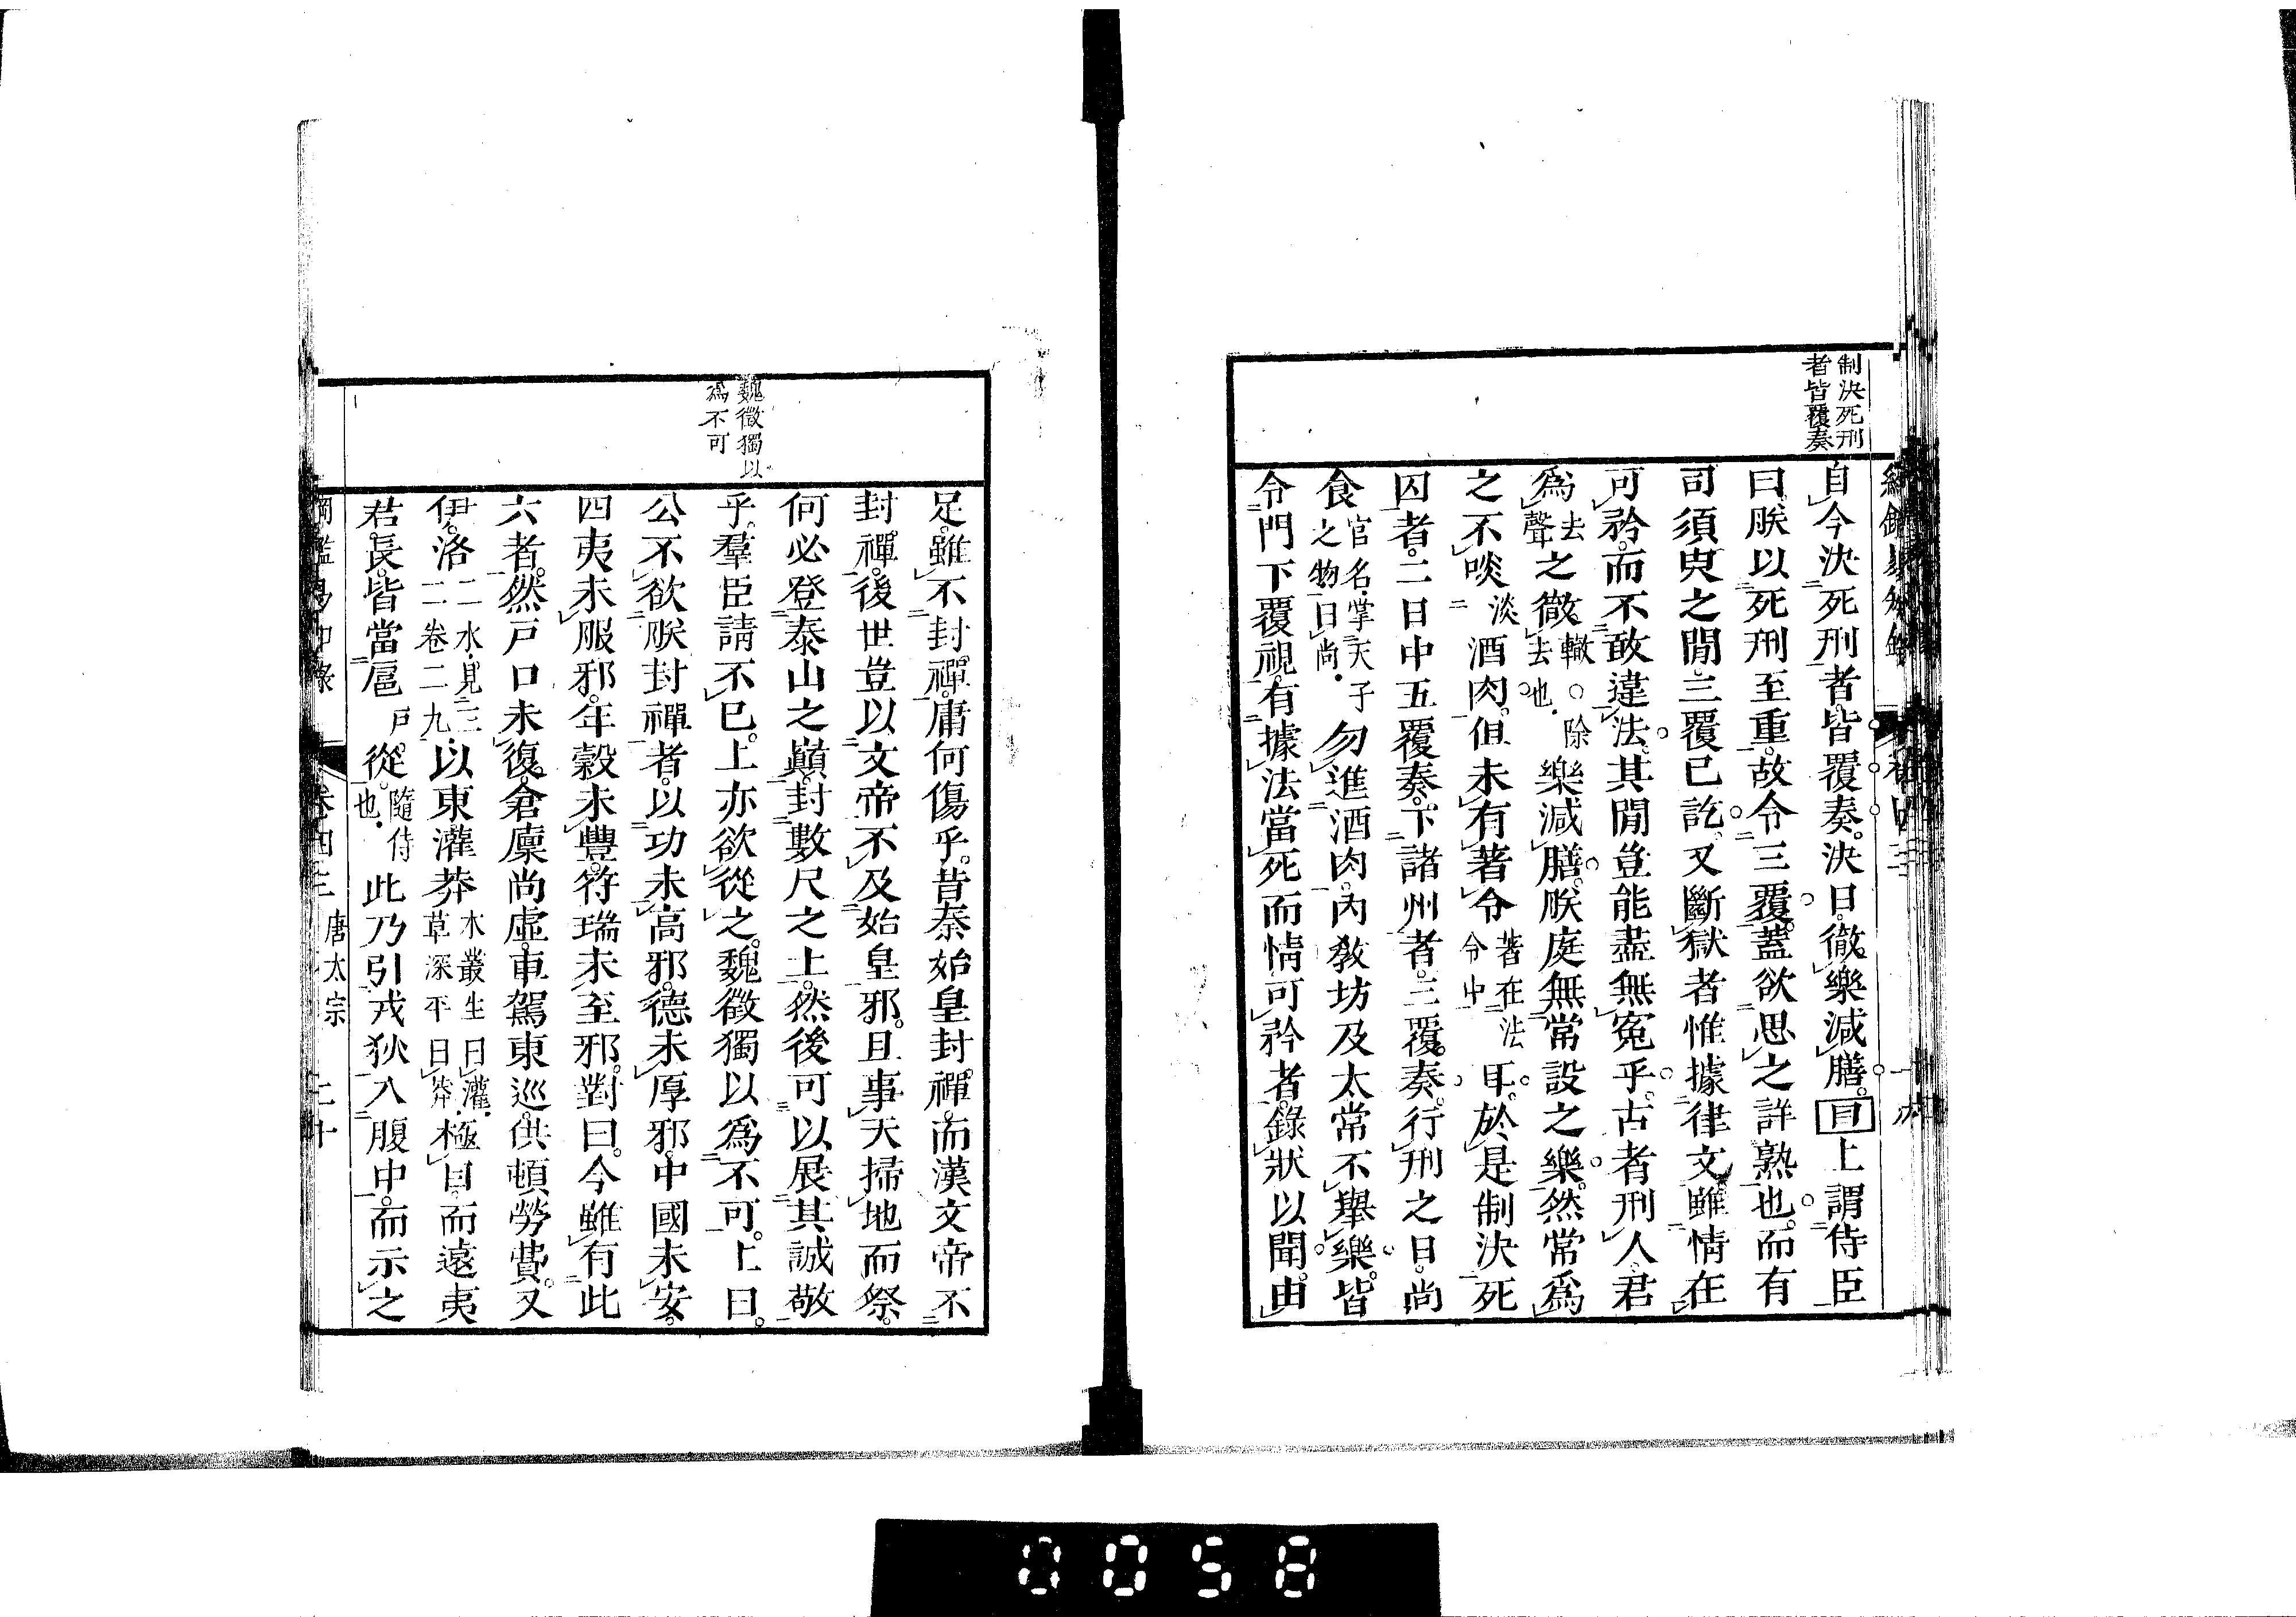 制決死刑
者皆覆奏
自今決死刑者。皆覆奏。決日。徹樂減膳。目上謂侍臣
曰。朕以死刑至重。故令三覆。蓋欲思之詳熟也。而有
司須臾之閒。三覆已訖。又斷獄者惟據律文。雖情在
可矜。而不敢違法。其閒豈能盡無寃乎。古者刑人。君
爲去聲之徹轍○除去也樂減膳。朕庭無常設之樂。然常爲
之不啖淡酒肉。但未有著令著在法令中耳。於是制決死
囚者。二日中五覆奏。下諸州者。三覆奏。行刑之日。尚
食官名掌天子之物曰尚勿進酒肉。內教坊及太常不舉樂。皆
令門下覆視。有據法當死而情可矜者。錄狀以聞。由
魏徵獨以
爲不可
足。雖不封禪。庸何傷乎。昔秦始皇封禪。而漢文帝不
封禪。後世豈以文帝不及始皇邪。且事天掃地而祭。
何必登泰山之巔。封數尺之土。然後可以展其誠敬
乎。羣臣請不已。上亦欲從之。魏徵獨以爲不可。上曰。
公不欲朕封禪者。以功未高邪。德未厚邪。中國未安。
四夷未服邪。年穀未豐。符瑞未至邪。對曰。今雖有此
六者。然戶口未復。倉廩尚虛。車駕東巡。供頓勞費。又
伊。洛二水見三一卷二九以東灌莽木叢生曰灌草深平曰莽極目。而遠夷
君。長。皆當扈戶從。隨侍也此乃引戎狄入腹中。而示之
唐太宗
0058